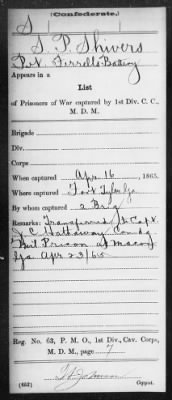 (Confederate.)
S
S P Shivers
Pvt. Ferrells Battery
Appears in a
List
of Prisoners of War captured by 1st Div. C. C.,
M. D. M.
Brigade
Div.
Corps
When captured Apr 16, 1865.
Where captured Fort Tyler Ga
By whom captured 2 Brig
Remarks: Transferred to Capt.
J. C. Hathaway Comdg
Mil Prison at Macon
Ga Apr 23/65
Reg. No. 63, P. M. O., 1st Div., Cav. Corps,
M. D. M., page 7
(652)
Copyist.